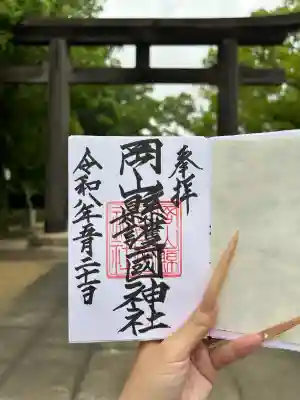 奉拝
岡山縣護國神社
令和八年五月二十一日